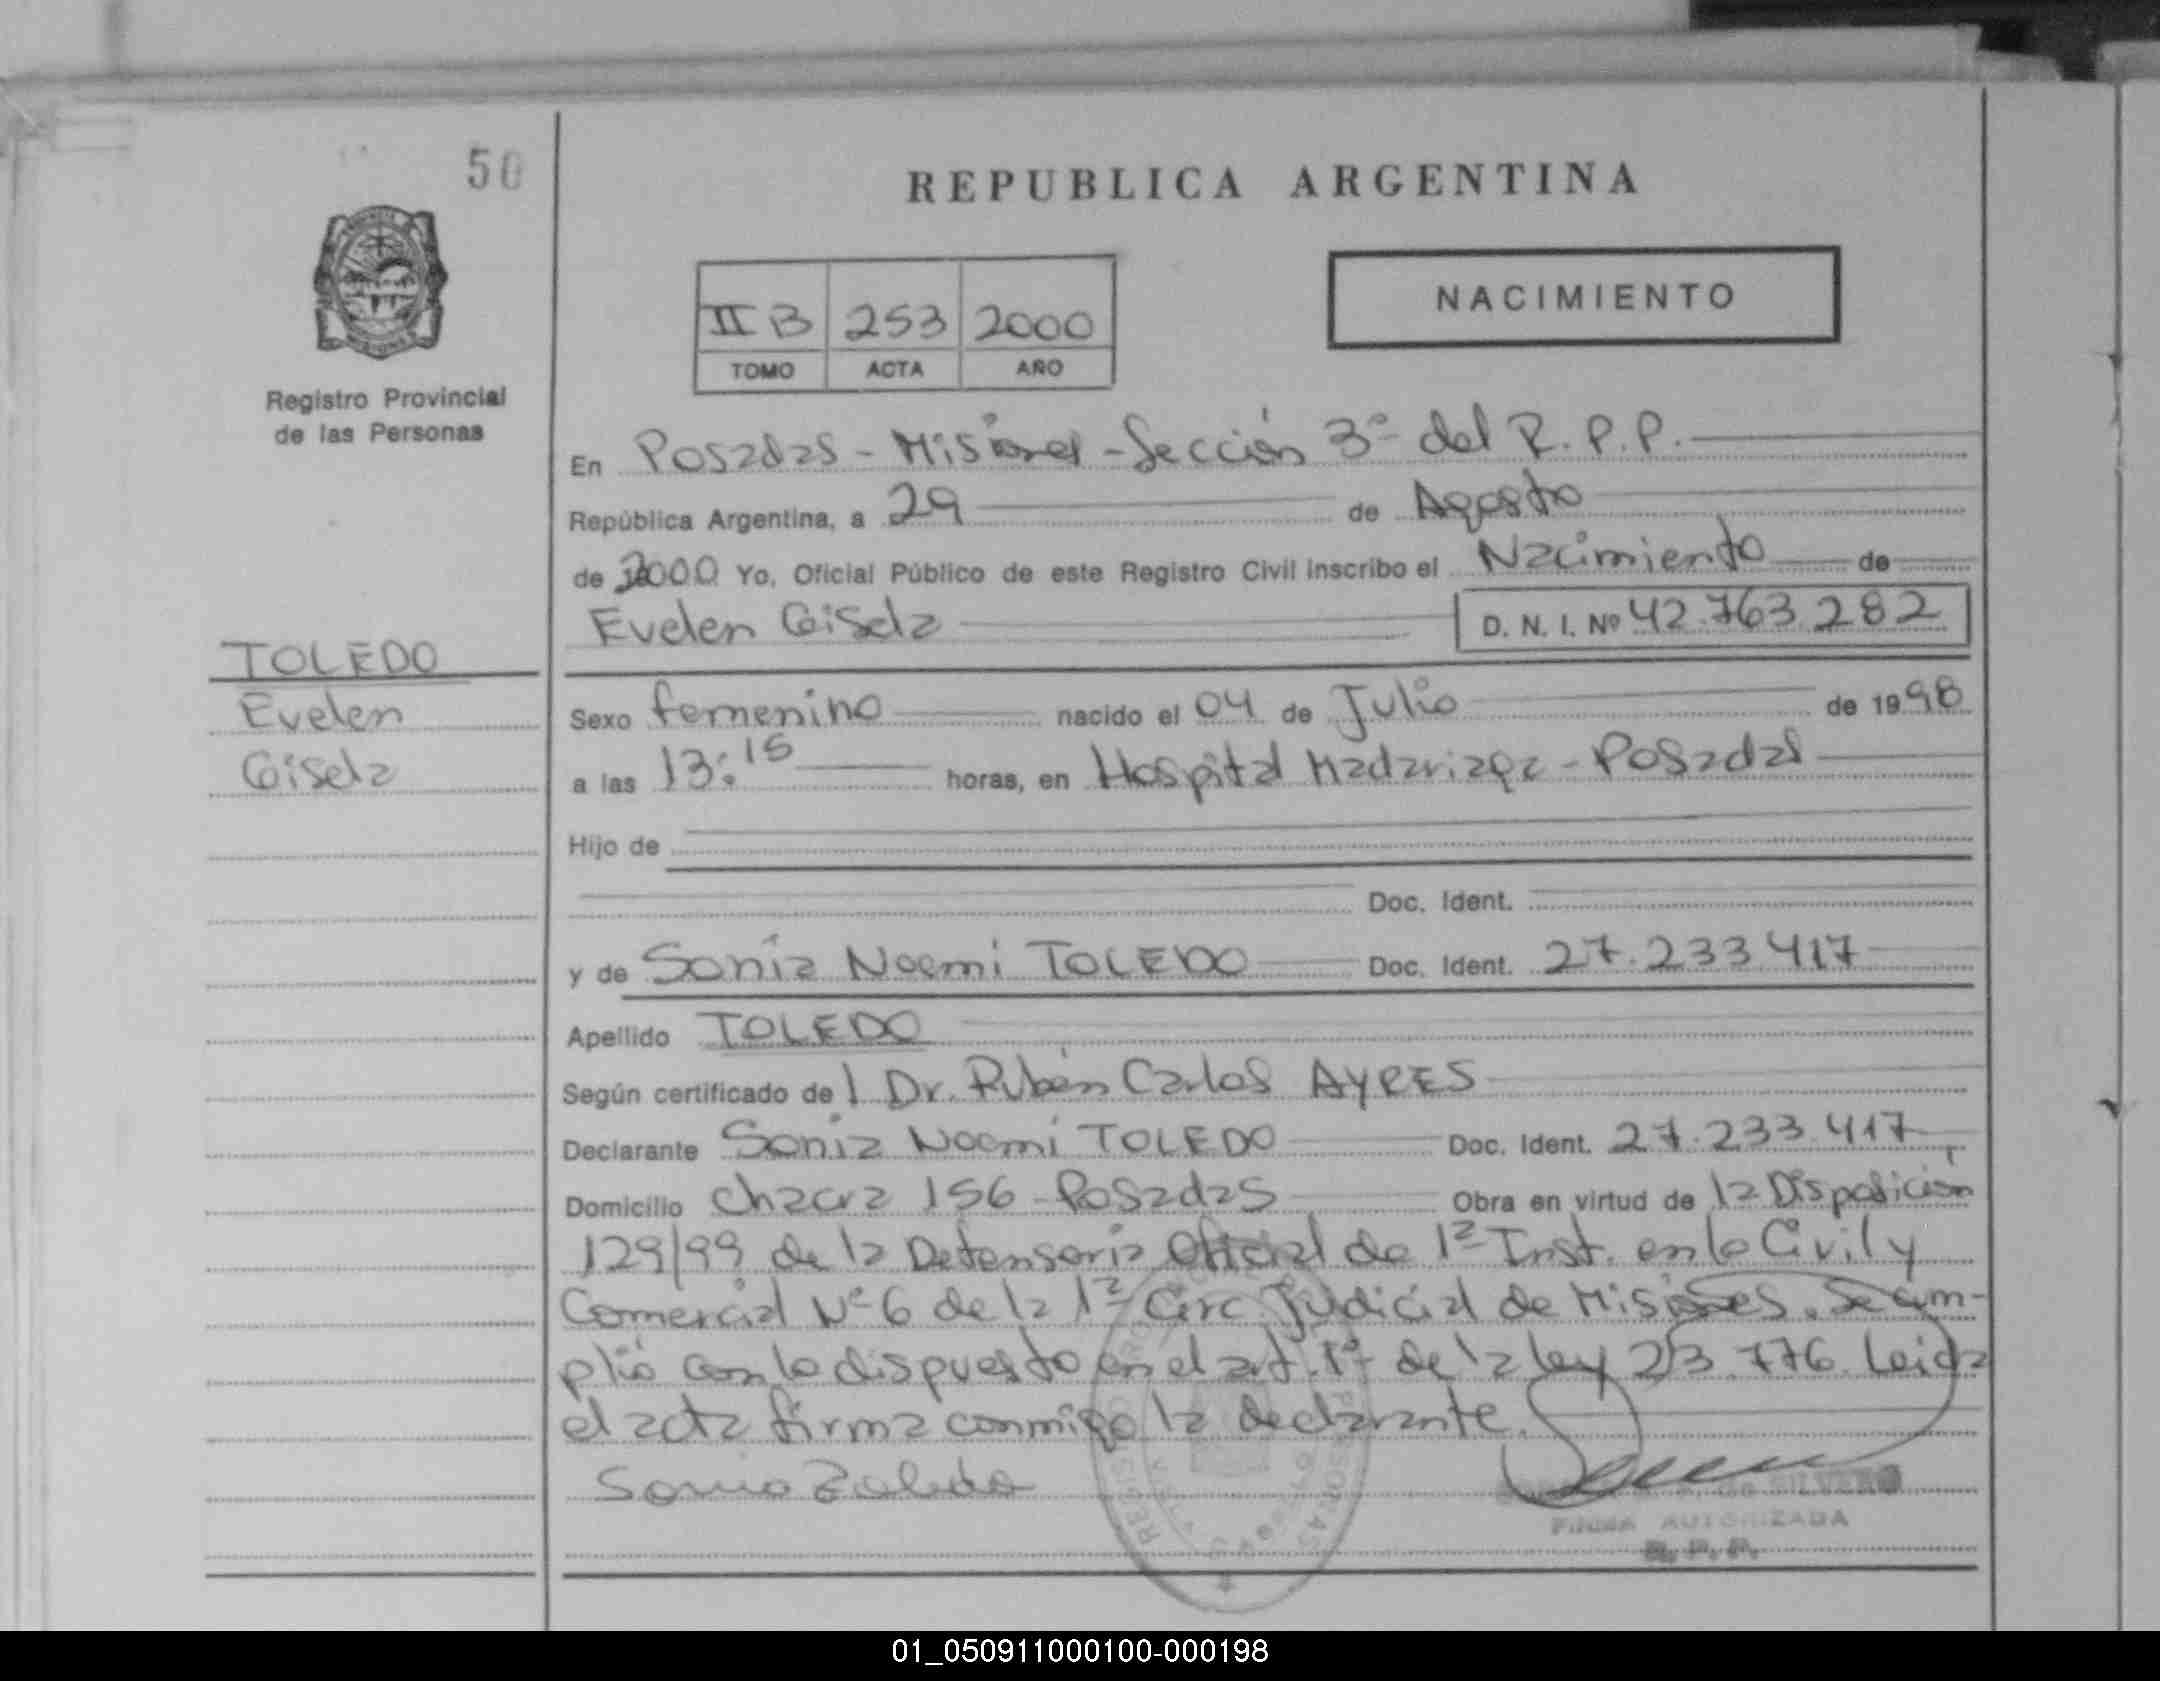 50
REPUBLICA ARGENTINA
NACIMIENTO
II B 253 2000
TOMO ACTA AÑO
Registro Provincial
de las Personas
En Posadas - Misiones - Sección 3º del R.P.P.
República Argentina, a 29 de Agosto
de 2000 Yo, Oficial Público de este Registro Civil inscribo el Nacimiento de
Evelen Gisela D. N. I. Nº 42.763.282
TOLEDO
Evelen
Gisela
Sexo femenino nacido el 04 de Julio de 1998
a las 13:15 horas, en Hospital Madariaga - Posadas
Hijo de
Doc. Ident.
y de Sonia Noemi TOLEDO Doc. Ident. 27.233.417
Apellido TOLEDO
Según certificado de l Dr. Rubén Carlos AYRES
Declarante Sonia Noemi TOLEDO Doc. Ident. 27.233.417
Domicilio Chacra 156 - Posadas Obra en virtud de la Disposición
129/99 de la Defensoria Oficial de 1ª Inst. en lo Civil y
Comercial Nº 6 de la 1ª Circ. Judicial de Misiones. Se cum-
plió con lo dispuesto en el art. 1º de la ley 23.776. Leida
el acta firma conmigo la declarante.
Sonia Toledo
SILVERO
FIRMA AUTORIZADA
R. P. P.
01_050911000100-000198